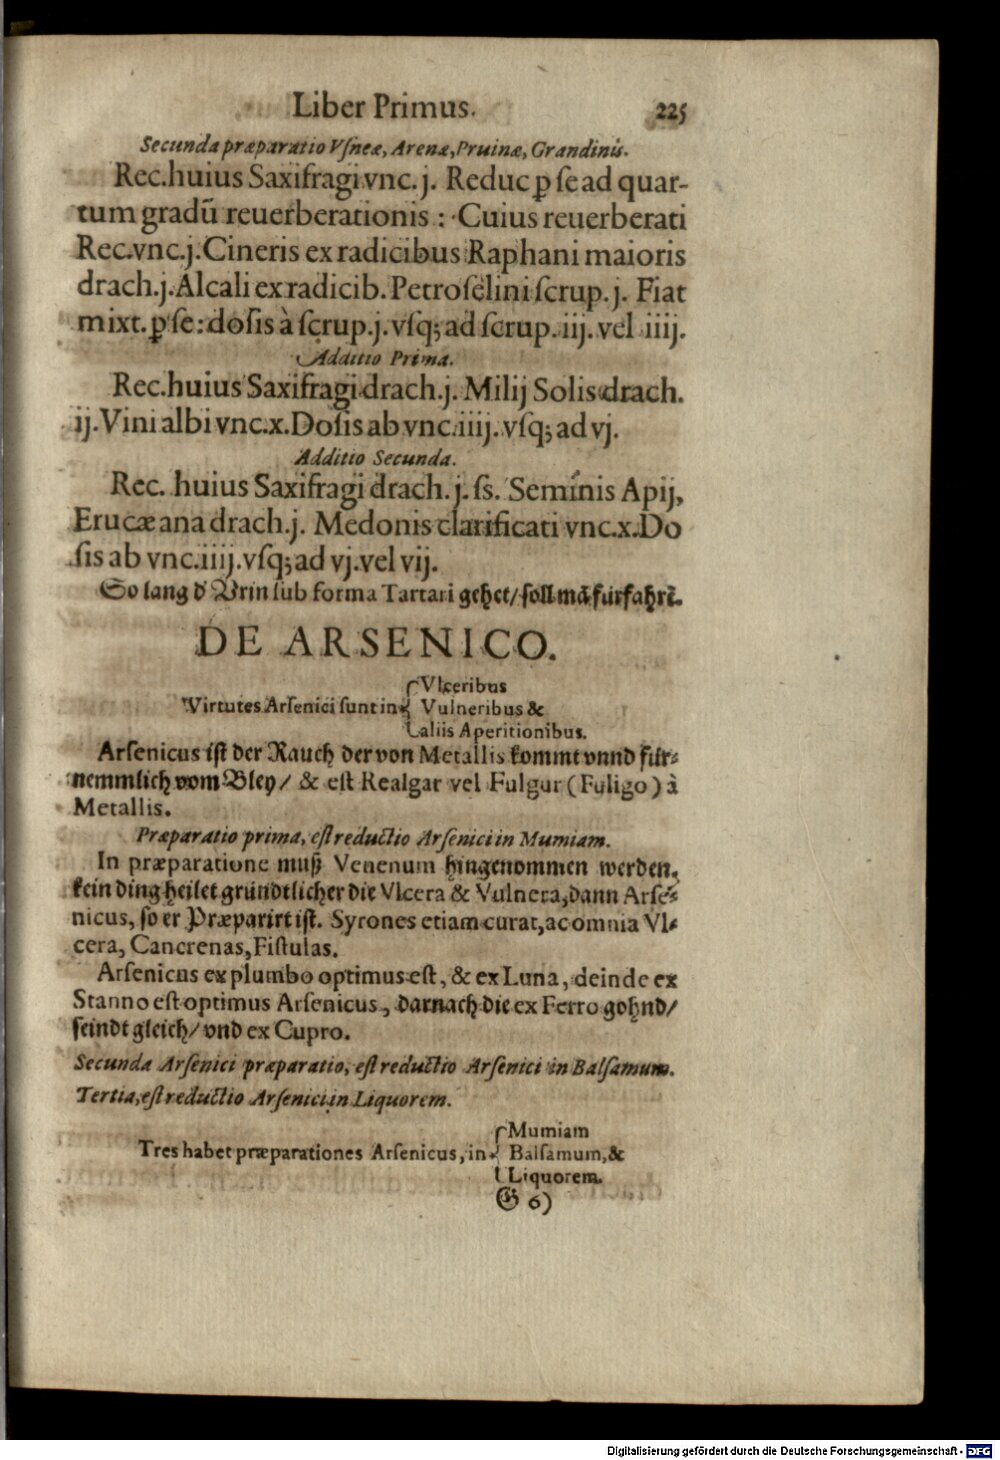 Liber Primus. 225
Secunda præparatio Vſneæ, Arenæ, Pruinæ, Grandinis.
Rec. huius Saxifragi vnc. j. Reduc ꝑ ſe ad quar-
tum gradū reuerberationis : Cuius reuerberati
Rec. vnc. j. Cineris ex radicibus Raphani maioris
drach. j. Alcali ex radicib. Petroſelini ſcrup. j. Fiat
mixt. ꝑ ſe: doſis à ſcrup. j. vſq; ad ſcrup. iij. vel iiij.
Additio Prima.
Rec. huius Saxifragi drach. j. Milij Solis drach.
ij. Vini albi vnc. x. Doſis ab vnc. iiij. vſq; ad vj.
Additio Secunda.
Rec. huius Saxifragi drach. j. ſs. Seminis Apij,
Erucæ ana drach. j. Medonis clarificati vnc. x. Do
ſis ab vnc. iiij. vſq; ad vj. vel vij.
So lang d' Vrin ſub forma Tartari gehet / ſoll mā fürfahrē.
DE ARSENICO.
Vlceribus
Virtutes Arſenici ſunt in { Vulneribus &
aliis Aperitionibus.
Arſenicus iſt der Rauch der von Metallis kommt vnnd für-
nemmlich vom Bley / & eſt Realgar vel Fulgur (Fuligo) à
Metallis.
Præparatio prima, eſt reductio Arſenici in Mumiam.
In præparatione muß Venenum hingenommen werden.
kein ding heilet gründtlicher die Vlcera & Vulnera, dann Arſe-
nicus, ſo er Præparirt iſt. Syrones etiam curat, ac omnia Vl-
cera, Cancrenas, Fiſtulas.
Arſenicus ex plumbo optimus eſt, & ex Luna, deinde ex
Stanno eſt optimus Arſenicus, darnach die ex Ferro gohnd /
ſeindt gleich / vnd ex Cupro.
Secunda Arſenici præparatio, eſt reductio Arſenici in Balſamum.
Tertia, eſt reductio Arſenici in Liquorem.
Mumiam
Tres habet præparationes Arſenicus, in { Balſamum, &
Liquorem.
G 6)
Digitalisierung gefördert durch die Deutsche Forschungsgemeinschaft - DFG